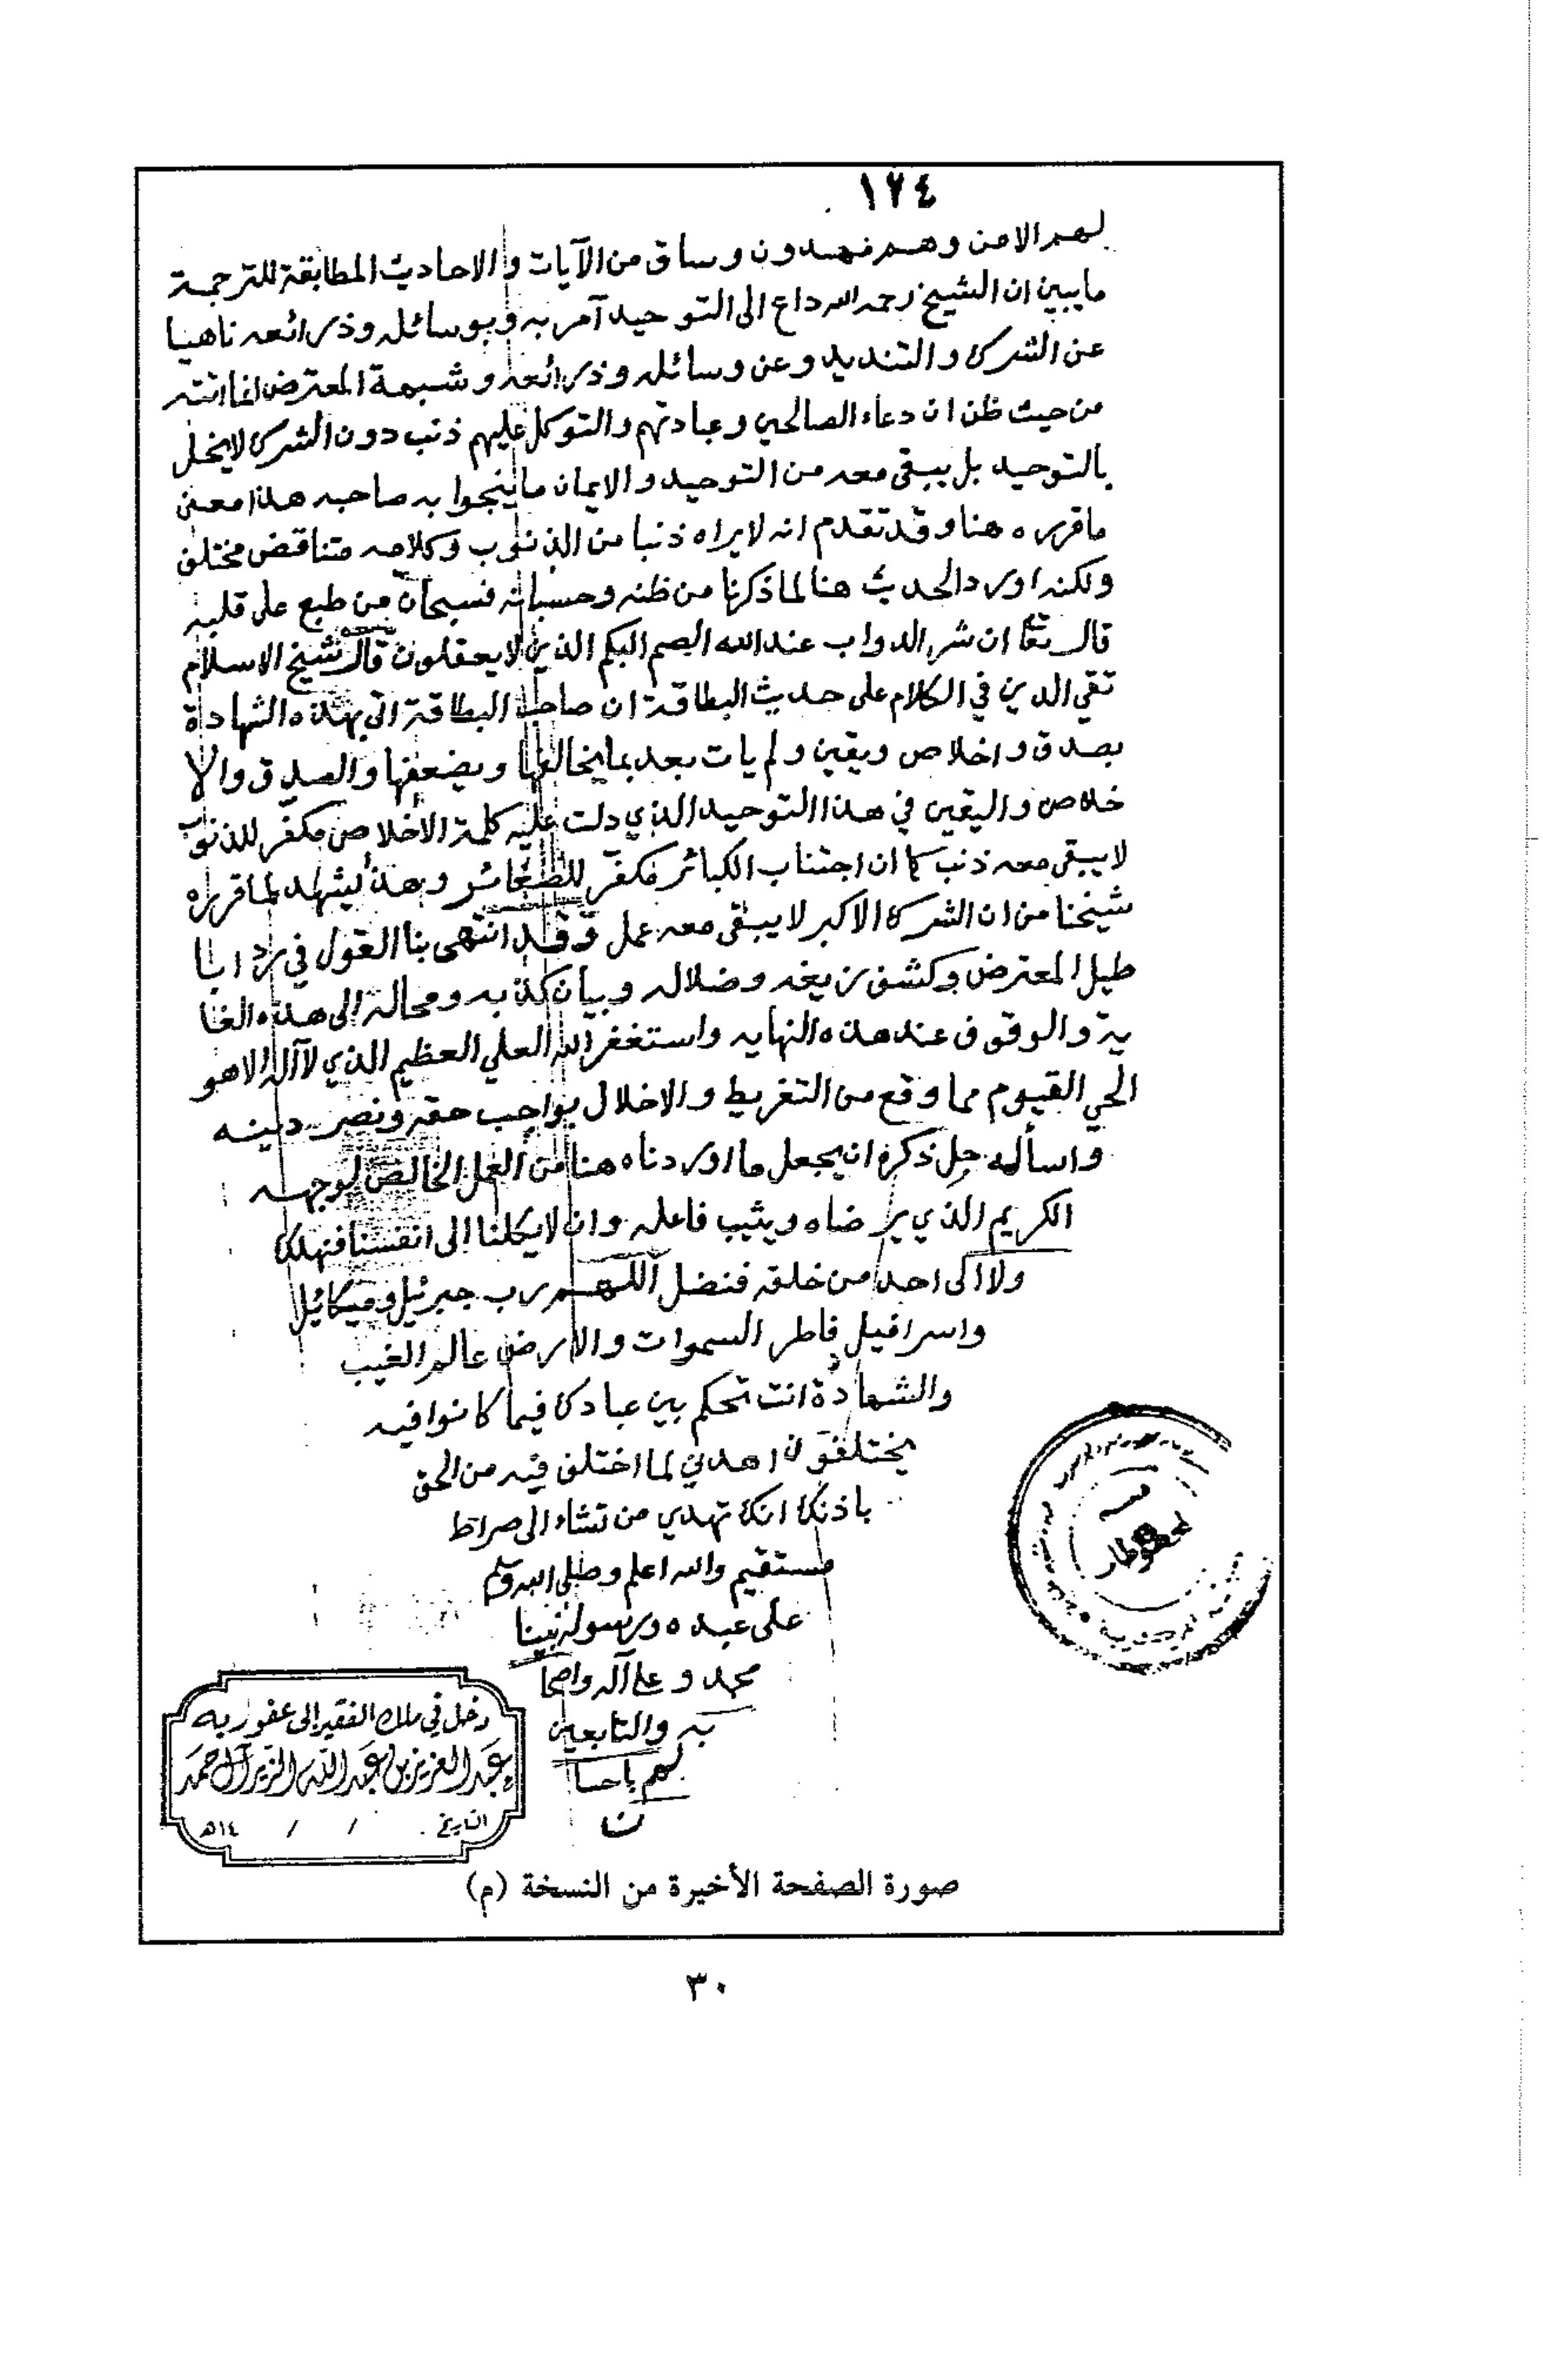 ١٧٤
لهم الامن وهم مهتدون وساق من الآيات والاحاديث المطابقة للترجمة
ما يبين ان الشيخ رحمه الله داع الى التوحيد آمر به وبوسائله وذرائعه ناهيا
عن الشرك والتنديد وعن وسائله وذرائعه وشبهة المعترض انما اتته
من حيث ظن ان دعاء الصالحين وعبادتهم والتوكل عليهم ذنب دون الشرك لا يخل
بالتوحيد بل يبقى معه من التوحيد والايمان ما ينجوا به صاحبه هذا معنى
ما قرره هنا وقد تقدم انه لا يراه ذنبا من الذنوب وكلامه متناقض مختلف
ولكنه اورد الحديث هنا لما ذكرنا من ظنه وحسبانه فسبحان من طبع على قلبه
قال تعا ان شر الدواب عند الله الصم البكم الذين لا يعقلون قال شيخ الاسلام
تقي الدين في الكلام على حديث البطاقة ان صاحب البطاقة اتى بهذه الشهادة
بصدق واخلاص ويقين ولم يات بعد بما يخالفها ويضعفها والصدق والا
خلاص واليقين في هذا التوحيد الذي دلت عليه كلمة الاخلاص مكفر للذنوب
لا يبقى معه ذنب كما ان اجتناب الكبائر مكفر للصغائر وهذا يشهد لما قرره
شيخنا من ان الشرك الاكبر لا يبقى معه عمل وقد انتهى بنا القول في رد ابا
طيل المعترض وكشف زيغه وضلاله وبيان كذبه ومحاله الى هذه الغا
ية والوقوف عند هذه النهايه واستغفر الله العلي العظيم الذي لا آله الا هو
الحي القيوم مما وقع من التفريط والاخلال بواجب حقه ونصر دينه
واسأله جل ذكره ان يجعل ما اوردناه هنا من العمل الخالص لوجهه
الكريم الذي يرضاه ويثيب فاعله وان لا يكلنا الى انفسنا فنهلك
ولا الى احد من خلقه فنضل اللهم رب جبرئيل وميكائيل
واسرافيل فاطر السموات والارض عالم الغيب
والشهادة انت تحكم بين عبادك فيما كانوا فيه
يختلفون اهدني لما اختلف فيه من الحق
باذنك انك تهدي من تشاء الى صراط
مستقيم والله اعلم وصلى الله وسلم
على عبده ورسوله نبينا
محمد وعلى آله واصحا
به والتابعين
لهم باحسا
ن
دخل في ملك الفقير إلى عفو ربه
عبد العزيز بن عبد الله الزير آل حمد
التاريخ / / ١٤هـ
صورة الصفحة الأخيرة من النسخة (م)
٣٠